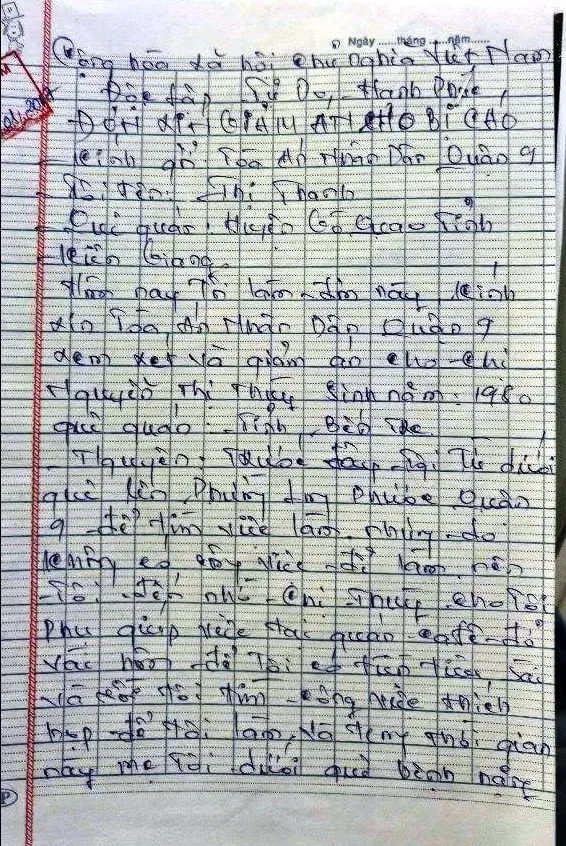 Ngày ......tháng ......năm......
Cộng hòa xã hội chủ nghĩa Việt Nam
Độc lập Tự Do, Hạnh Phúc,
ĐƠN XIN GIẢM ÁN CHO BỊ CÁO
Kính gởi Tòa Án Nhân Dân Quận 9
Tôi tên: Thị Thanh
Quê quán: Huyện Gò Quao Tỉnh
Kiên Giang
Hôm nay Tôi làm đơn này, Kính
xin Tòa Án Nhân Dân Quận 9
xem xét và giảm án cho chị
Nguyễn Thị Thúy Sinh năm: 1980
quê quán: Tỉnh Bến Tre
Nguyên: Trước đây Tôi Từ dưới
quê lên Phường Phước Quận
9 để tìm việc làm, nhưng do
không có việc để làm nên
Tôi đến nhờ Chị Thúy cho Tôi
Phụ giúp việc tại quán cafê đó
vài hôm để Tôi có Sài
và tôi tìm công việc thích
hợp để tôi làm, Và trong thời gian
này mẹ Tôi dưới quê bệnh nặng